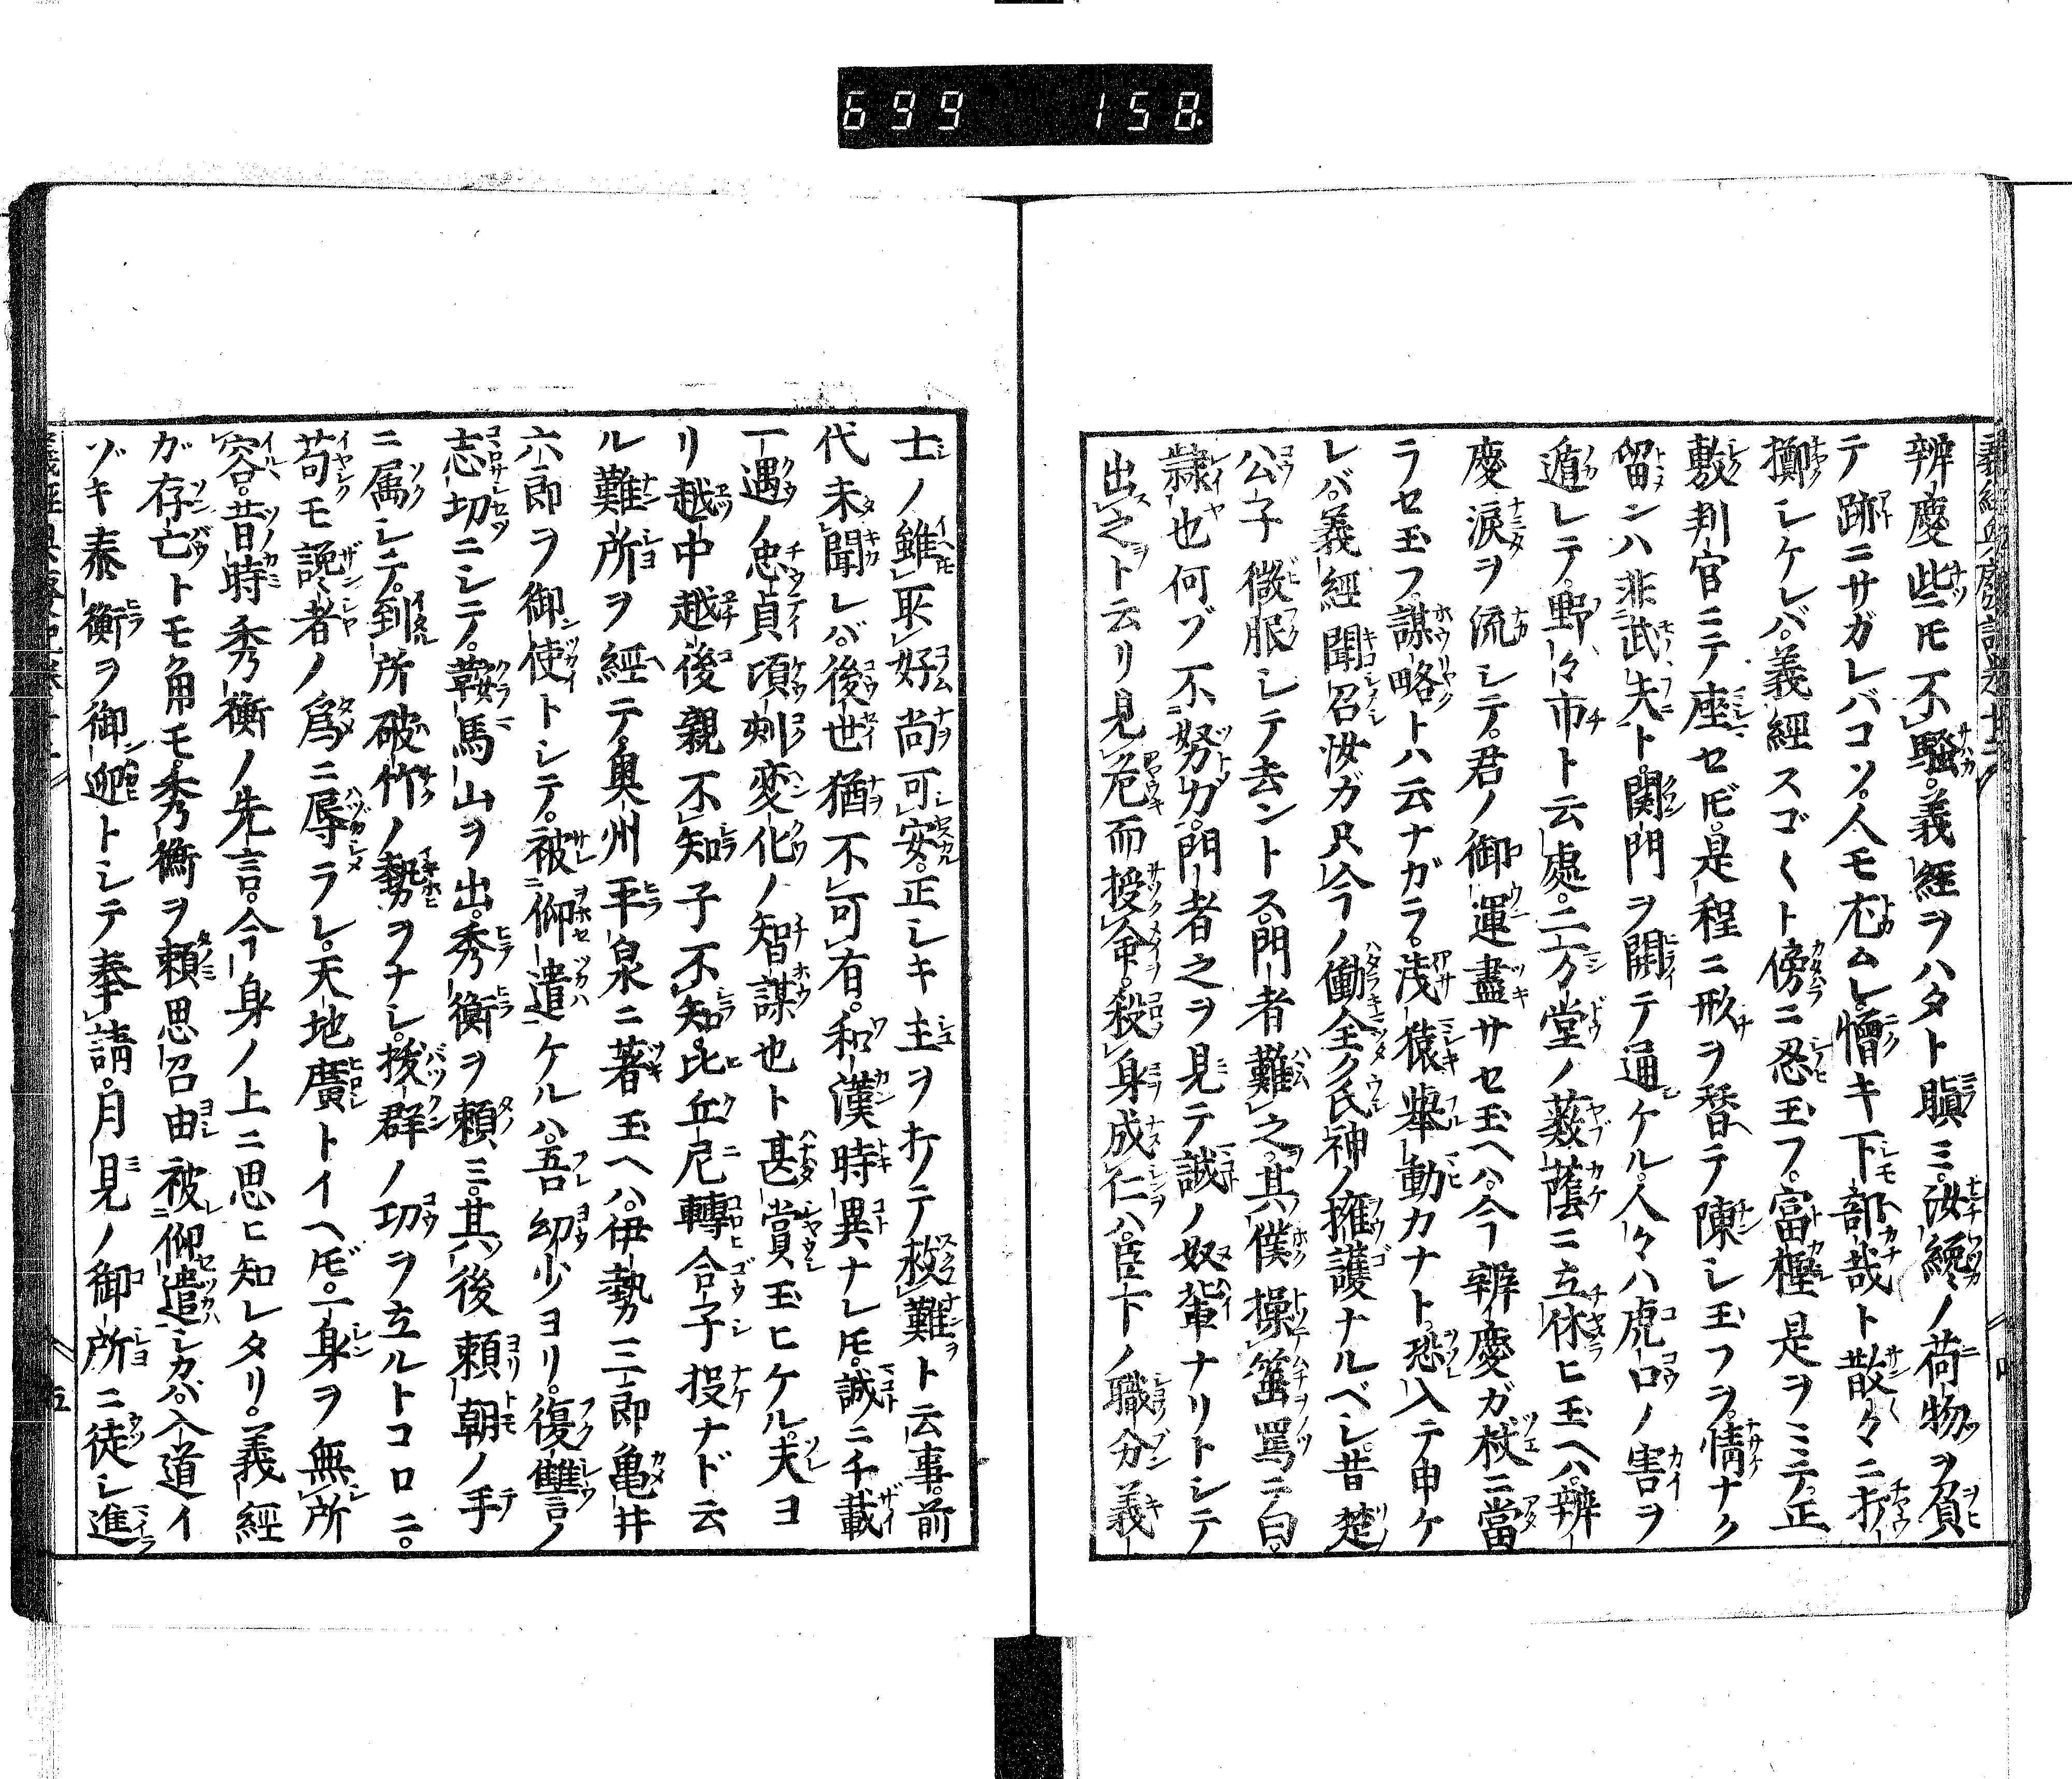 699 158
辨慶些トモ不騒。義經ヲハタト瞋ミ。汝纔ノ荷物ヲ負
テ跡ニサガレバコソ。人モ尤ムレ憎キ下部哉ト散々ニ打
擲シケレバ。義經スゴ〱ト傍ニ忍玉フ。富樫是ヲミテ。正
敷判官ニテ座セドモ。是程ニ形ヲ替テ陳シ玉フヲ。情ナク
留ンハ非武夫ト。関門ヲ開テ通ケル。人々ハ虎口ノ害ヲ
遁レテ。野々市ト云處。二万堂ノ薮蔭ニ立休ヒ玉ヘハ。辨
慶涙ヲ流シテ。君ノ御運盡サセ玉ヘハ。今辨慶ガ杖ニ當
ラセ玉フ。謀略トハ云ナガラ。浅猿擧動カナト。恐入テ申ケ
レバ。義經聞召汝ガ只今ノ働全ク氏神ノ擁護ナルベシ。昔楚
公子微服シテ去ントス。門者難之。其僕操箠罵ニ曰。
隷也何ブ不努力。門者之ヲ見テ誠ノ奴輩ナリトシテ
出之ト云リ見危而授命。殺身成仁ハ。臣下ノ職分義
士ノ雖所好尚可安。正シキ主ヲ打テ救難ト云事。前
代未聞レバ。後世猶不可有。和漢時異ナレドモ。誠ニ千載
一遇ノ忠貞頃刻変化ノ智謀也ト甚賞玉ヒケル。夫ヨ
リ越中越後親不知子不知。比丘尼轉合子投ナド云
ル難所ヲ經テ。奥州平泉ニ著玉ヘハ。伊勢三郎亀井
六郎ヲ御使トシテ。被仰遣ケルハ。吾幼少ヨリ。復讐ノ
志切ニシテ。鞍馬山ヲ出。秀衡ヲ頼ミ。其後頼朝ノ手
ニ属シテ。到所破竹ノ勢ヲナシ。抜群ノ功ヲ立ルトコロニ。
苟モ讒者ノ爲ニ辱ラレ。天地廣トイヘドモ。一身ヲ無所
容。昔時秀衡ノ先言。今身ノ上ニ思ヒ知レタリ。義經
ガ存亡トモ角モ。秀衡ヲ頼思召由被仰遣シカバ。入道イ
ソギ泰衡ヲ御迎トシテ奉請。月見ノ御所ニ徒シ進
五